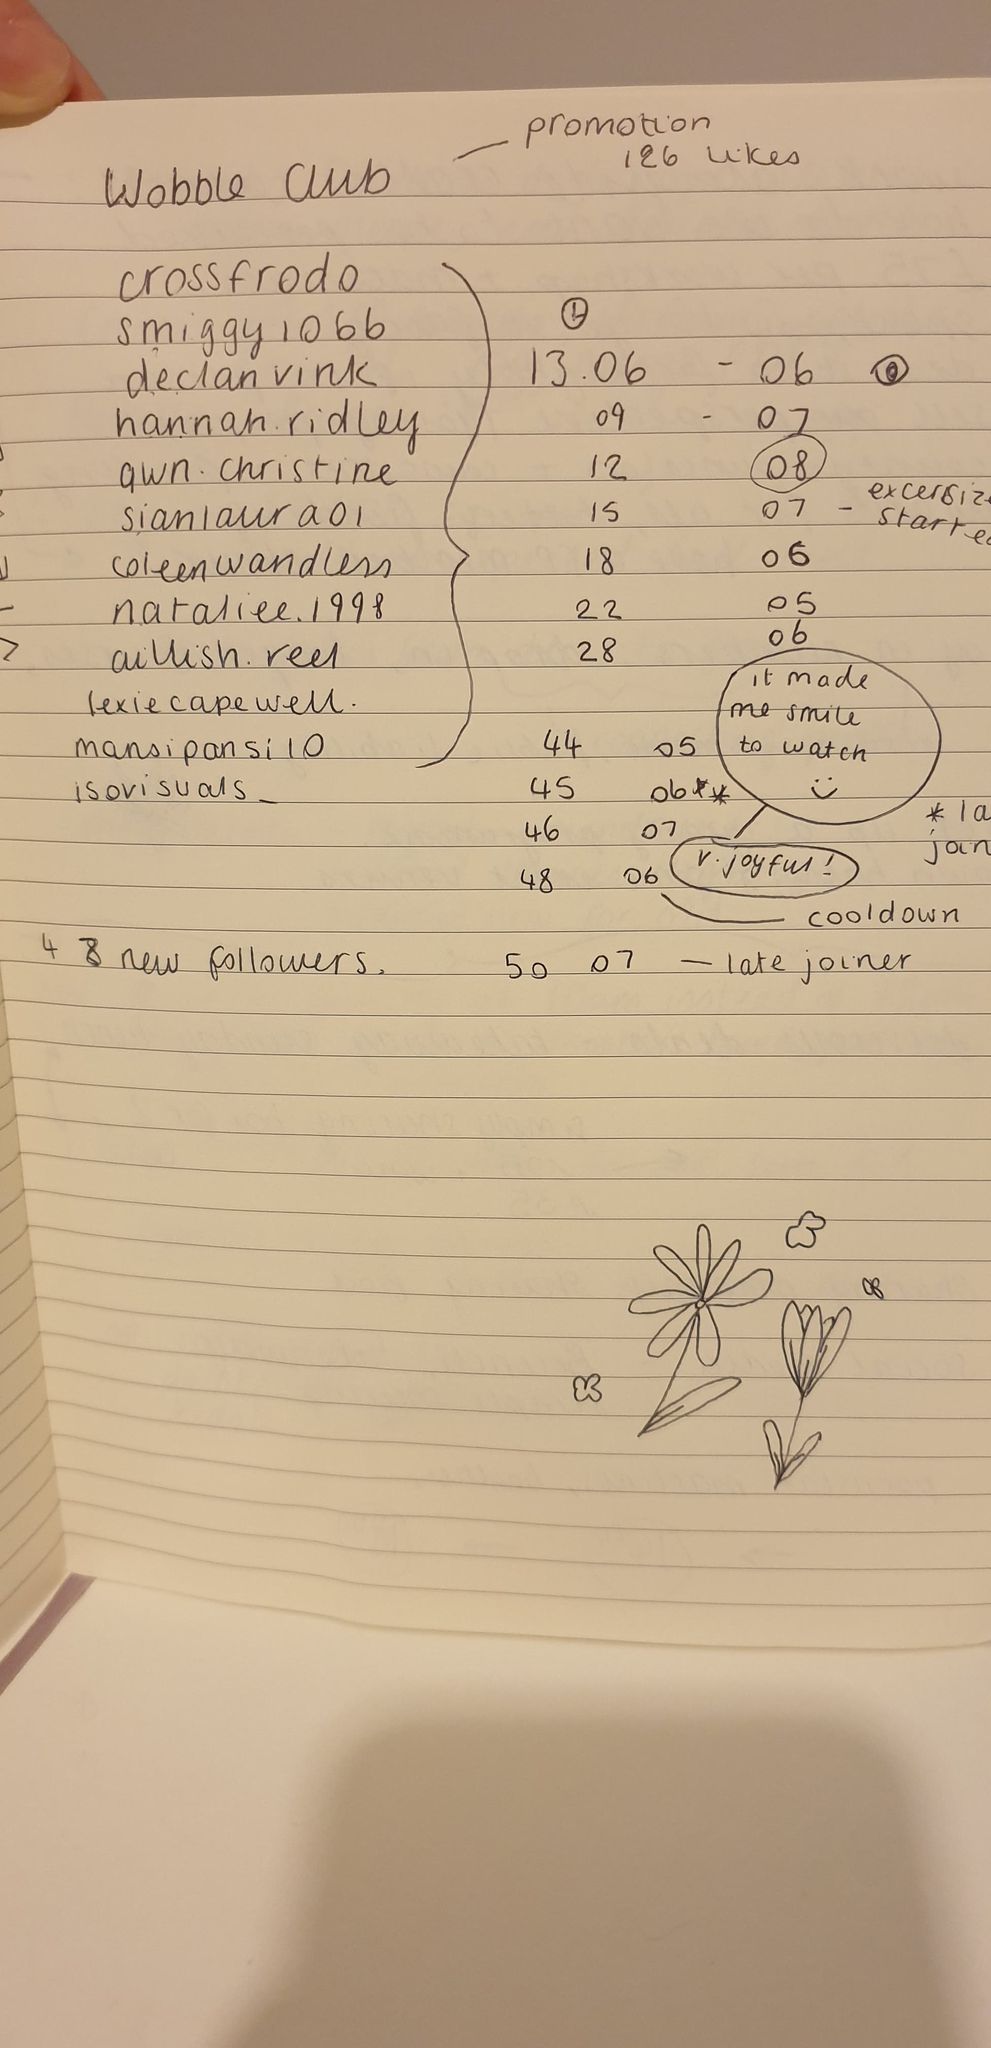 promotion
126 likes
Wobble Club
crossfrodo
smiggy1066
declanvink
13.06 - 06
hannah.ridley
09 - 07
awn.christine
12 08
sianlaura01
15 07 - excersize
started
coleenwandless
18 06
nataliee.1998
22 05
aillish.reel
28 06
lexiecapewell.
it made
me smile
to watch
mansipansi10
44 05
isovisuals_
45 06**
* la
join
46 07
v. joyful!
48 06
cooldown
4 8 new followers.
50 07 - late joiner